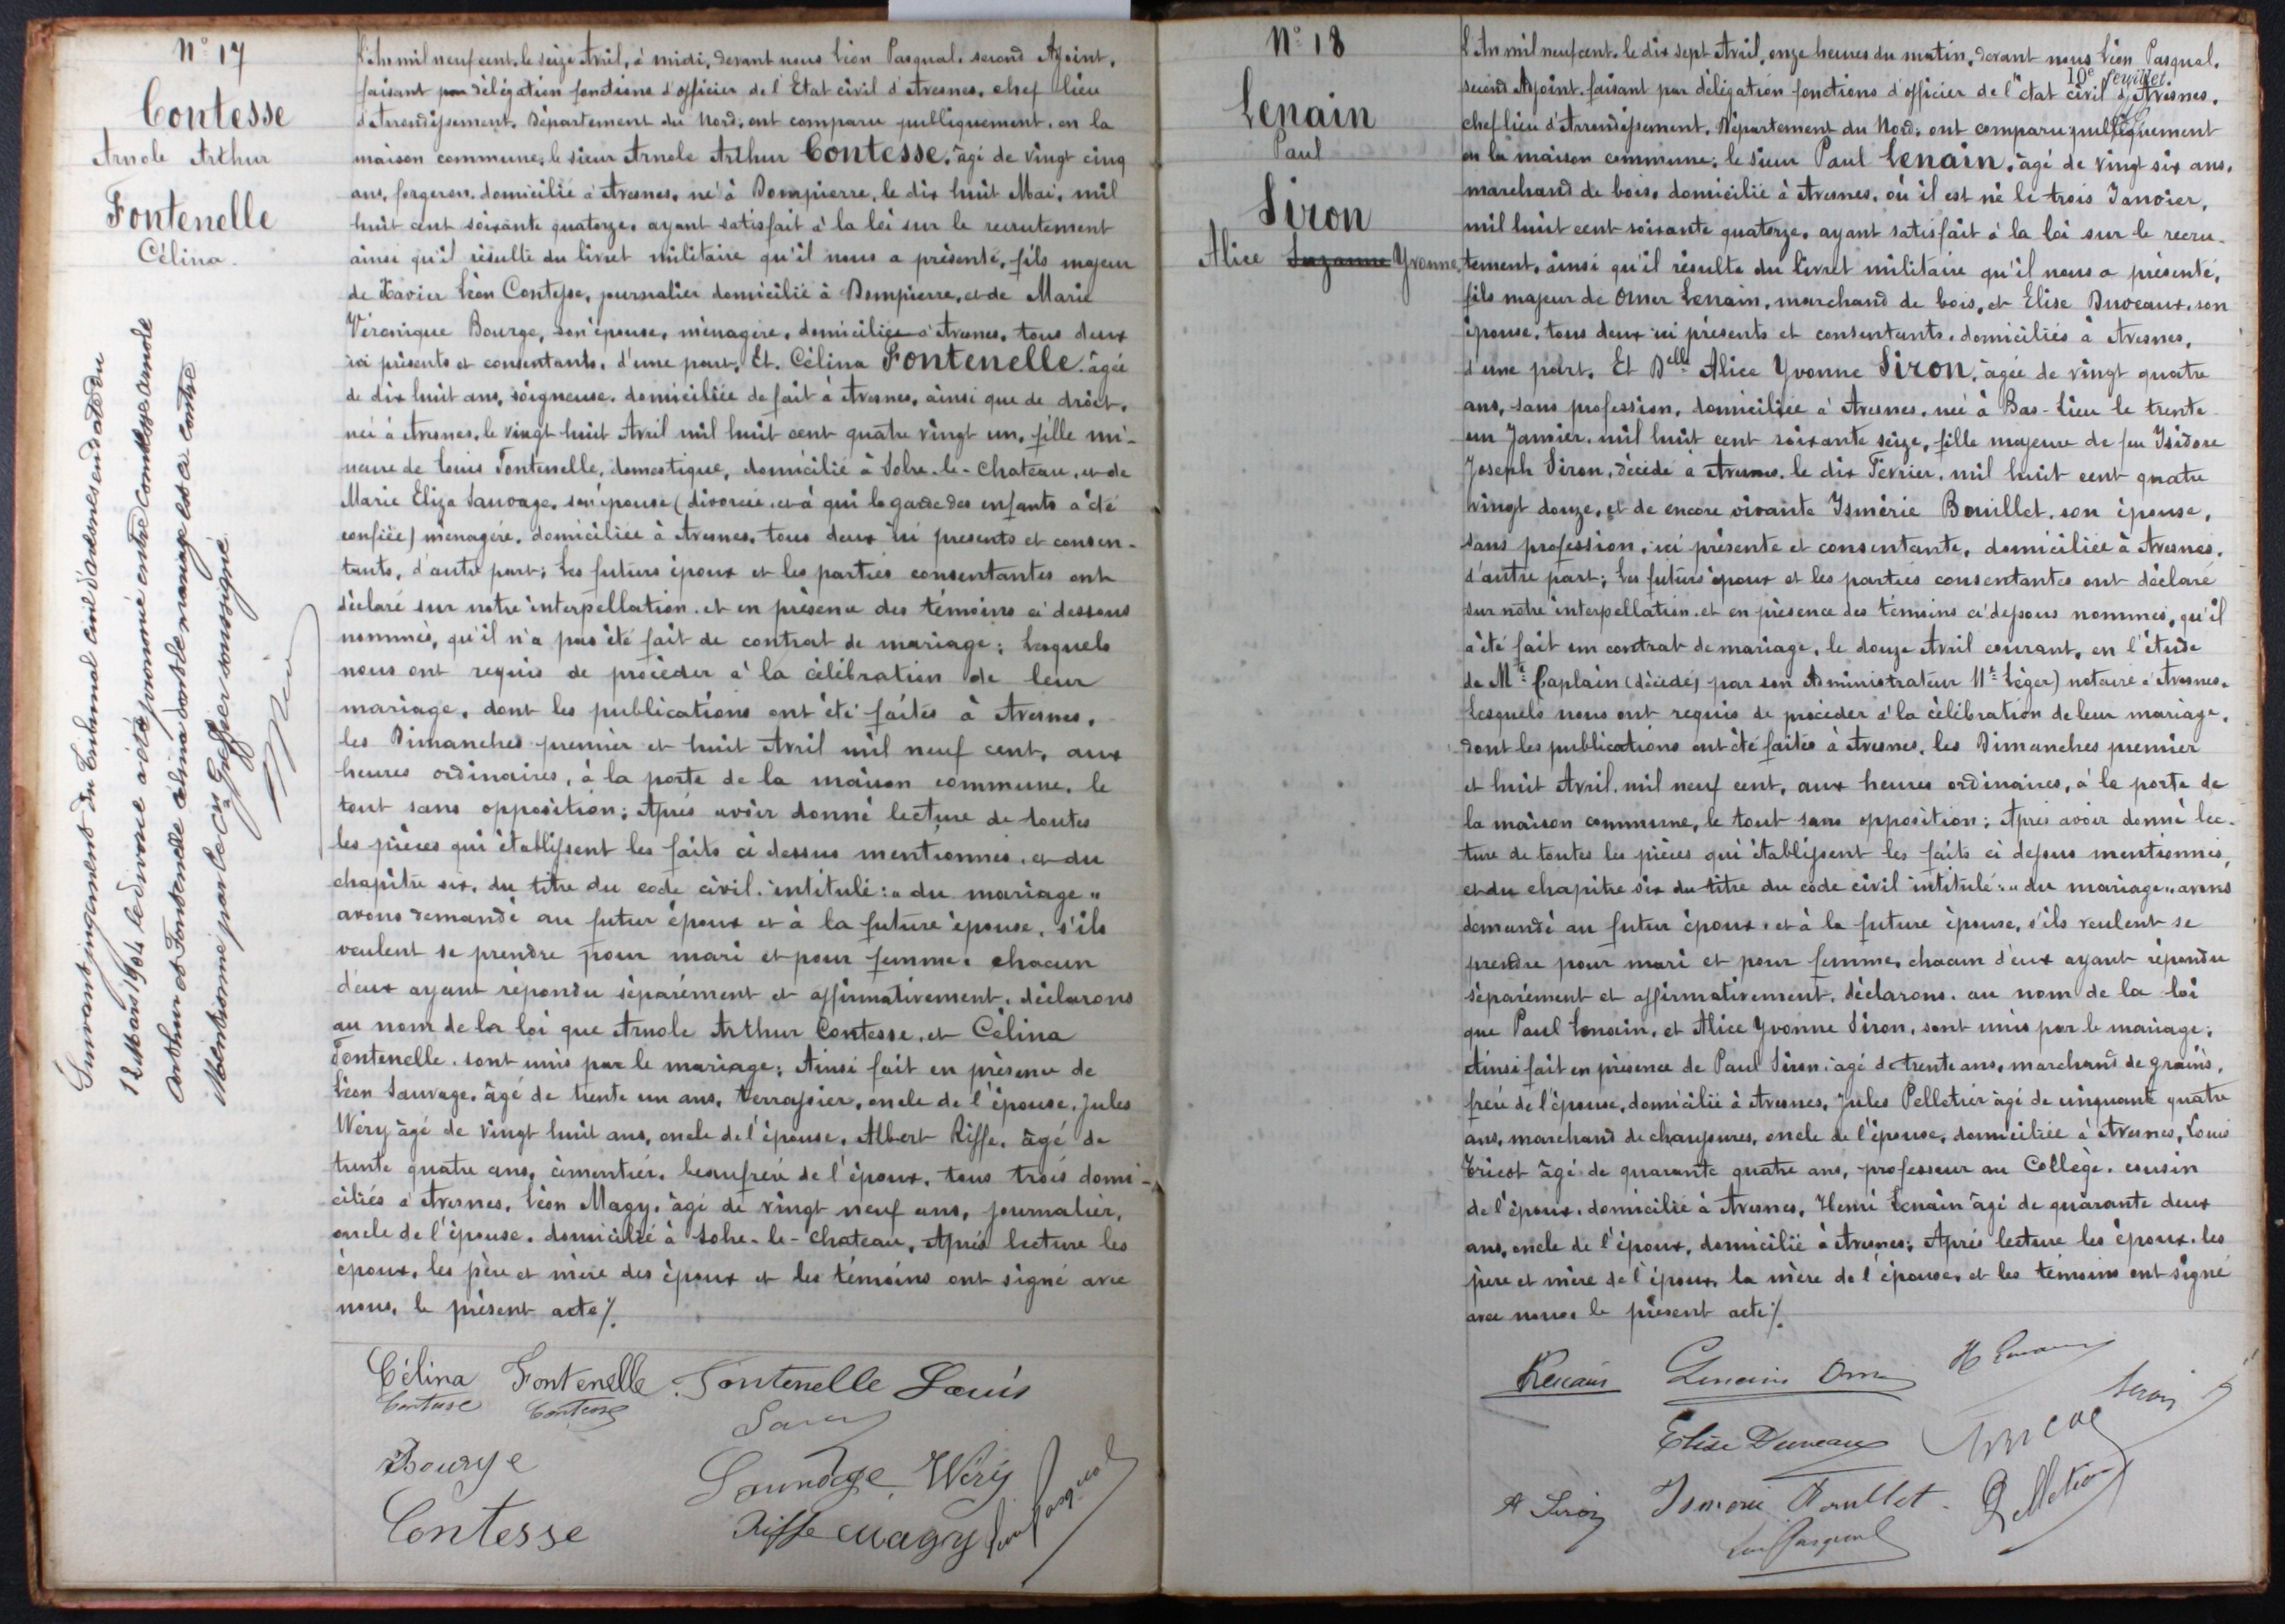 N° 17
Contesse
Arnole Arthur
Fontenelle
Célina.
L'An mil neuf cent, le seize Avril, à midi, devant nous Léon Pasqual, second Adjoint,
faisant par délégation fonctions d'officier de l'Etat civil d'Avesnes, chef lieu
d'Arrondissement, Département du Nord, ont comparu publiquement, en la
maison commune, le sieur Arnole Arthur Contesse, âgé de vingt cinq
ans, forgeron, domicilié à Avesnes, né à Dompierre, le dix huit Mai, mil
huit cent soixante quatorze, ayant satisfait à la loi sur le recrutement
ainsi qu'il résulte du livret militaire qu'il nous a présenté, fils majeur
de Xavier Léon Contesse, journalier domicilié à Dompierre, et de Marie
Véronique Bourge, son épouse, ménagère, domiciliée à Avesnes, tous deux
ici présents et consentants, d'une part, Et. Célina Fontenelle. âgée
de dix huit ans, soigneuse, domiciliée de fait à Avesnes, ainsi que de droit,
née à Avesnes, le vingt huit Avril mil huit cent quatre vingt un, fille mi-
neure de Louis Fontenelle, domestique, domicilié à Solre-le-Chateau, et de
Marie Eliza Sauvage, son épouse (divorcée, et à qui la garde des enfants a été
confiée) ménagère, domiciliée à Avesnes, tous deux ici presents et consen-
tants, d'autre part; Les futurs époux et les parties consentantes ont
déclaré sur notre interpellation, et en présence des témoins ci dessous
nommés, qu'il n'a pas été fait de contrat de mariage; Lesquels
nous ont requis de procéder à la célébration de leur
mariage, dont les publications ont été faites à Avesnes,
les Dimanches premier et huit Avril mil neuf cent, aux
heures ordinaires, à la porte de la maison commune, le
tout sans opposition; Après avoir donné lecture de toutes
les pièces qui établissent les faits ci dessus mentionnés, et du
chapitre six, du titre du code civil. intitulé: „ du mariage "
avons demandé au futur époux et à la future épouse, s'ils
veulent se prendre pour mari et pour femme, chacun
d'eux ayant répondu séparément et affirmativement, déclarons
au nom de la loi que Arnole Arthur Contesse, et Célina
Fontenelle, sont unis par le mariage; Ainsi fait en présence de
Léon Sauvage, âgé de trente un ans, terrassier, oncle de l'épouse, Jules
Wéry âgé de vingt huit ans, oncle de l'épouse, Albert Riffe, âgé de
trente quatre ans, cimentier, beaufrère de l'époux, tous trois domi-
ciliés à Avesnes, Léon Magy, âgé de vingt neuf ans, journalier,
oncle de l'épouse, domicilié à Solre-le-Chateau, Après lecture les
époux, les père et mère des époux et les témoins ont signé avec
nous, le présent acte/.
Suivant jugement du tribunal civil d'avesnes en date du
12 Mars 1904 le divorce a été prononcé entre Contesse Arnole
Arthur et Fontenelle Célina dont le mariage est ci contre
Mentionné par le Greffier soussigné
Célina Fontenelle Fontenelle Louis
Contesse Contesse
Bourge Sauvage Wéry
Contesse Riffe Magy Léon Pasqual
N° 18
Lenain
Paul
Siron
Alice Suzanne Yvonne
10e feuillet.
L'An mil neuf cent, le dix sept Avril, onze heures du matin, devant nous Léon Pasqual,
second Adjoint, faisant par délégation fonctions d'officier de l'état civil d'Avesnes,
chef lieu d'Arrondissement, Département du Nord, ont comparu publiquement
en la maison commune; le sieur Paul Lenain, âgé de vingt six ans,
marchand de bois, domicilié à Avesnes, où il est né le trois Janvier,
mil huit cent soixante quatorze, ayant satisfait à la loi sur le recru-
tement, ainsi qu'il résulte du livret militaire qu'il nous a présenté,
fils majeur de Omer Lenain, marchand de bois, et Elise Duveaux, son
épouse, tous deux ici présents et consentants, domiciliés à Avesnes,
d'une part. Et Delle Alice Yvonne Siron, âgée de vingt quatre
ans, sans profession, domiciliée à Avesnes, née à Bas-Lieu le trente
un Janvier, mil huit cent soixante seize, fille majeure de feu Isidore
Joseph Siron, décédé à Avesnes, le dix Février, mil huit cent quatre
vingt douze, et de encore vivante Ismérie Bouillet, son épouse,
sans profession, ici présente et consentante, domiciliée à Avesnes,
d'autre part; Les futurs époux et les parties consentantes ont déclaré
sur notre interpellation, et en présence des témoins ci dessous nommés, qu'il
a été fait un contrat de mariage, le douze Avril courant, en l'étude
de Me Caplain (décédé, par son Administrateur Me Léger) notaire à Avesnes,
Lesquels nous ont requis de procéder à la célébration de leur mariage,
dont les publications ont été faites à Avesnes, les Dimanches premier
et huit Avril, mil neuf cent, aux heures ordinaires, à la porte de
la maison commune, le tout sans opposition; Après avoir donné lec-
ture de toutes les pièces qui établissent les faits ci dessus mentionnés,
et du chapitre six du titre du code civil intitulé: „ du mariage „ avons
demandé au futur époux, et à la future épouse, s'ils veulent se
prendre pour mari et pour femme, chacun d'eux ayant répondu
séparément et affirmativement, déclarons, au nom de la loi
que Paul Lenain, et Alice Yvonne Siron, sont unis par le mariage;
Ainsi fait en présence de Paul Siron, âgé de trente ans, marchand de grains,
frère de l'épouse, domicilié à Avesnes, Jules Pelletier âgé de cinquante quatre
ans, marchand de chaussures, oncle de l'épouse, domiciliée à Avesnes, Louis
Tricot âgé de quarante quatre ans, professeur au Collège, cousin
de l'époux, domicilié à Avesnes, Henri Lenain âgé de quarante deux
ans, oncle de l'époux, domicilié à Avesnes; Après lecture les époux, les
père et mère de l'époux, la mère de l'épouse, et les témoins ont signé
avec nous, le présent acte/.
Lenain Omer H Lenain
Elise Duveaux Tricot Siron
A Siron Ismérie Bouillet Pelletier
Léon Pasqual